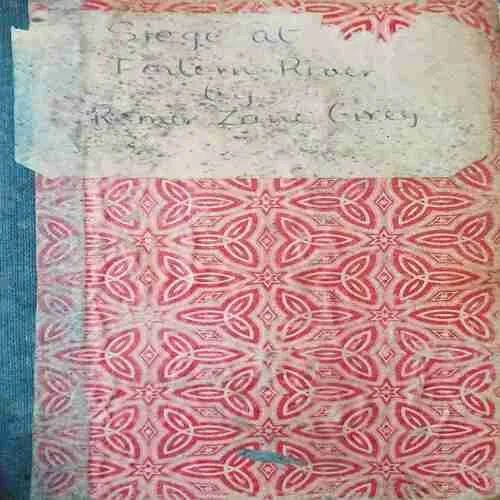 Siege at
Forlorn River
by
Romer Zane Grey